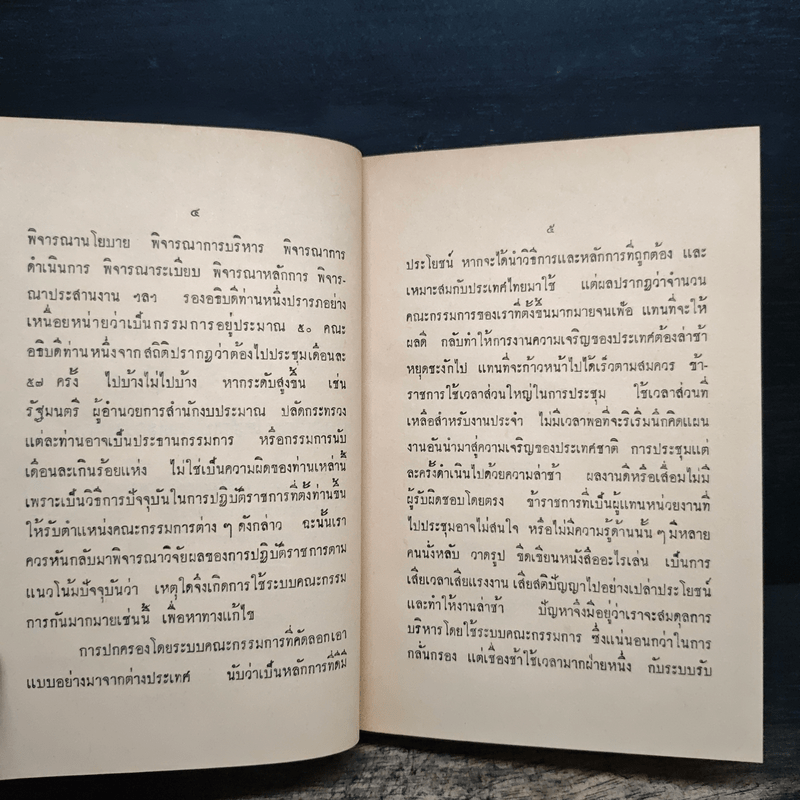 ๔
พิจารณานโยบาย พิจารณาการบริหาร พิจารณาการ
ดำเนินการ พิจารณาระเบียบ พิจารณาหลักการ พิจาร-
ณาประสานงาน ฯลฯ รองอธิบดีท่านหนึ่งปรารภอย่าง
เหนื่อยหน่ายว่าเป็นกรรมการอยู่ประมาณ ๕๐ คณะ
อธิบดีท่านหนึ่งจากสถิติปรากฏว่าต้องไปประชุมเดือนละ
๕๗ ครั้ง ไปบ้างไม่ไปบ้าง หากระดับสูงขึ้น เช่น
รัฐมนตรี ผู้อำนวยการสำนักงบประมาณ ปลัดกระทรวง
แต่ละท่านอาจเป็นประธานกรรมการ หรือกรรมการนับ
เดือนละเกินร้อยแห่ง ไม่ใช่เป็นความผิดของท่านเหล่านี้
เพราะเป็นวิธีการปัจจุบันในการปฏิบัติราชการที่ตั้งท่านขึ้น
ให้รับตำแหน่งคณะกรรมการต่าง ๆ ดังกล่าว ฉะนั้นเรา
ควรหันกลับมาพิจารณาวิจัยผลของการปฏิบัติราชการตาม
แนวโน้มปัจจุบันว่า เหตุใดจึงเกิดการใช้ระบบคณะกรรม
การกันมากมายเช่นนี้ เพื่อหาทางแก้ไข
การปกครองโดยระบบคณะกรรมการที่คัดลอกเอา
แบบอย่างมาจากต่างประเทศ นับว่าเป็นหลักการที่ดีมี
๕
ประโยชน์ หากจะได้นำวิธีการและหลักการที่ถูกต้อง และ
เหมาะสมกับประเทศไทยมาใช้ แต่ผลปรากฏว่าจำนวน
คณะกรรมการของเราที่ตั้งขึ้นมากมายจนเฟ้อ แทนที่จะให้
ผลดี กลับทำให้การงานความเจริญของประเทศต้องล่าช้า
หยุดชะงักไป แทนที่จะก้าวหน้าไปได้เร็วตามสมควร ข้า-
ราชการใช้เวลาส่วนใหญ่ในการประชุม ใช้เวลาส่วนที่
เหลือสำหรับงานประจำ ไม่มีเวลาพอที่จะริเริ่มนึกคิดแผน
งานอันนำมาสู่ความเจริญของประเทศชาติ การประชุมแต่
ละครั้งดำเนินไปด้วยความล่าช้า ผลงานดีหรือเสื่อมไม่มี
ผู้รับผิดชอบโดยตรง ข้าราชการที่เป็นผู้แทนหน่วยงานที่
ไปประชุมอาจไม่สนใจ หรือไม่มีความรู้ด้านนั้น ๆ มีหลาย
คนนั่งหลับ วาดรูป ขีดเขียนหนังสืออะไรเล่น เป็นการ
เสียเวลาเสียแรงงาน เสียสติปัญญาไปอย่างเปล่าประโยชน์
และทำให้งานล่าช้า ปัญหาจึงมีอยู่ว่าเราจะสมดุลการ
บริหารโดยใช้ระบบคณะกรรมการ ซึ่งแน่นอนกว่าในการ
กลั่นกรอง แต่เชื่องช้าใช้เวลามากฝ่ายหนึ่ง กับระบบรับ